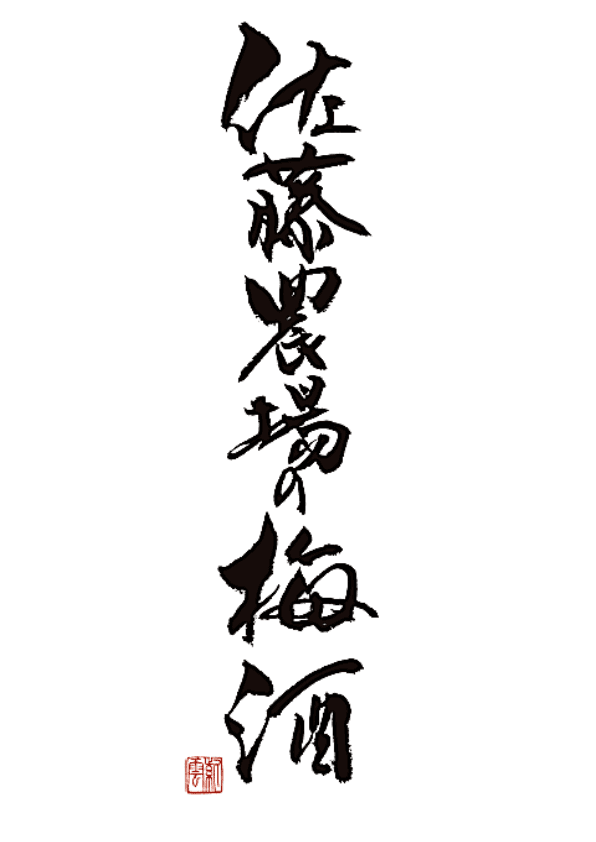 佐藤農場の梅酒